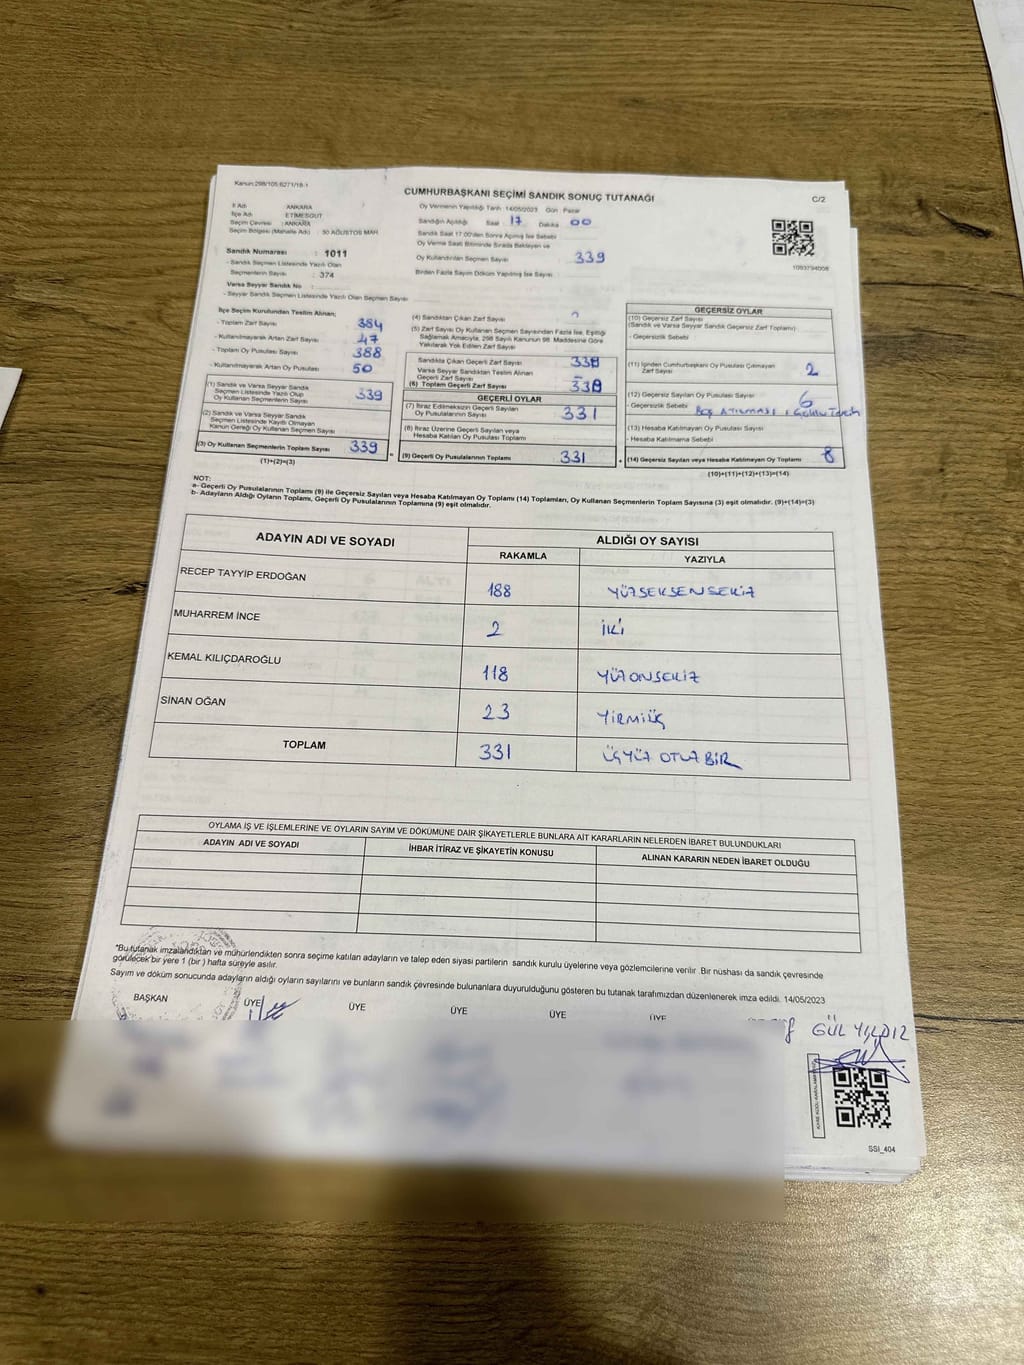 Kanun:298/105;6271/18-1
CUMHURBAŞKANI SEÇİMİ SANDIK SONUÇ TUTANAĞI
C/2
İl Adı : ANKARA
İlçe Adı : ETİMESGUT
Seçim Çevresi : ANKARA
Seçim Bölgesi (Mahalle Adı) : 30 AĞUSTOS MAH
Oy Vermenin Yapıldığı Tarih 14/05/2023 Gün Pazar
Sandığın Açıldığı Saat 17 Dakika 00
Sandık Saat 17:00'den Sonra Açılmış İse Sebebi
Oy Verme Saati Bitiminde Sırada Bekleyen ve
Oy Kullandırılan Seçmen Sayısı 339
Birden Fazla Sayım Döküm Yapılmış İse Sayısı
1093794008
Sandık Numarası : 1011
- Sandık Seçmen Listesinde Yazılı Olan
Seçmenlerin Sayısı : 374
Varsa Seyyar Sandık No
- Seyyar Sandık Seçmen Listesinde Yazılı Olan Seçmen Sayısı
İlçe Seçim Kurulundan Teslim Alınan;
- Toplam Zarf Sayısı 384
- Kullanılmayarak Artan Zarf Sayısı 47
- Toplam Oy Pusulası Sayısı 388
- Kullanılmayarak Artan Oy Pusulası 50
(1) Sandık ve Varsa Seyyar Sandık
Seçmen Listesinde Yazılı Olup
Oy Kullanan Seçmenlerin Sayısı 339
(2) Sandık ve Varsa Seyyar Sandık
Seçmen Listesinde Kayıtlı Olmayan
Kanun Gereği Oy Kullanan Seçmen Sayısı
(3) Oy Kullanan Seçmenlerin Toplam Sayısı 339
(1)+(2)=(3)
(4) Sandıktan Çıkan Zarf Sayısı
(5) Zarf Sayısı Oy Kullanan Seçmen Sayısından Fazla İse, Eşitliği
Sağlamak Amacıyla, 298 Sayılı Kanunun 98. Maddesine Göre
Yakılarak Yok Edilen Zarf Sayısı
Sandıkta Çıkan Geçerli Zarf Sayısı 338
Varsa Seyyar Sandıktan Teslim Alınan
Geçerli Zarf Sayısı –
(6) Toplam Geçerli Zarf Sayısı 338
GEÇERLİ OYLAR
(7) İtiraz Edilmeksizin Geçerli Sayılan
Oy Pusulalarının Sayısı 331
(8) İtiraz Üzerine Geçerli Sayılan veya
Hesaba Katılan Oy Pusulası Toplamı
(9) Geçerli Oy Pusulalarının Toplamı 331
GEÇERSİZ OYLAR
(10) Geçersiz Zarf Sayısı
(Sandık ve Varsa Seyyar Sandık Geçersiz Zarf Toplamı)
- Geçersizlik Sebebi
(11) İçinden Cumhurbaşkanı Oy Pusulası Çıkmayan
Zarf Sayısı 2
(12) Geçersiz Sayılan Oy Pusulası Sayısı 6
- Geçersizlik Sebebi BOŞ ATILMASI
(13) Hesaba Katılmayan Oy Pusulası Sayısı
- Hesaba Katılmama Sebebi
(14) Geçersiz Sayılan veya Hesaba Katılmayan Oy Toplamı 8
(10)+(11)+(12)+(13)=(14)
NOT:
a- Geçerli Oy Pusulalarının Toplamı (9) ile Geçersiz Sayılan veya Hesaba Katılmayan Oy Toplamı (14) Toplamları, Oy Kullanan Seçmenlerin Toplam Sayısına (3) eşit olmalıdır. (9)+(14)=(3)
b- Adayların Aldığı Oyların Toplamı, Geçerli Oy Pusulalarının Toplamına (9) eşit olmalıdır.
ADAYIN ADI VE SOYADI
ALDIĞI OY SAYISI
RAKAMLA YAZIYLA
RECEP TAYYİP ERDOĞAN 188 YÜZSEKSENSEKİZ
MUHARREM İNCE 2 İKİ
KEMAL KILIÇDAROĞLU 118 YÜZONSEKİZ
SİNAN OĞAN 23 YİRMİÜÇ
TOPLAM 331 ÜÇYÜZ OTUZBİR
OYLAMA İŞ VE İŞLEMLERİNE VE OYLARIN SAYIM VE DÖKÜMÜNE DAİR ŞİKAYETLERLE BUNLARA AİT KARARLARIN NELERDEN İBARET BULUNDUKLARI
ADAYIN ADI VE SOYADI İHBAR İTİRAZ VE ŞİKAYETİN KONUSU ALINAN KARARIN NEDEN İBARET OLDUĞU
*Bu tutanak imzalandıktan ve mühürlendikten sonra seçime katılan adayların ve talep eden siyasi partilerin sandık kurulu üyelerine veya gözlemcilerine verilir. Bir nüshası da sandık çevresinde
görülecek bir yere 1 (bir) hafta süreyle asılır.
Sayım ve döküm sonucunda adayların aldığı oyların sayılarını ve bunların sandık çevresinde bulunanlara duyurulduğunu gösteren bu tutanak tarafımızdan düzenlenerek imza edildi. 14/05/2023
BAŞKAN ÜYE ÜYE ÜYE ÜYE ÜYE
GÜL YILDIZ
SSİ_404